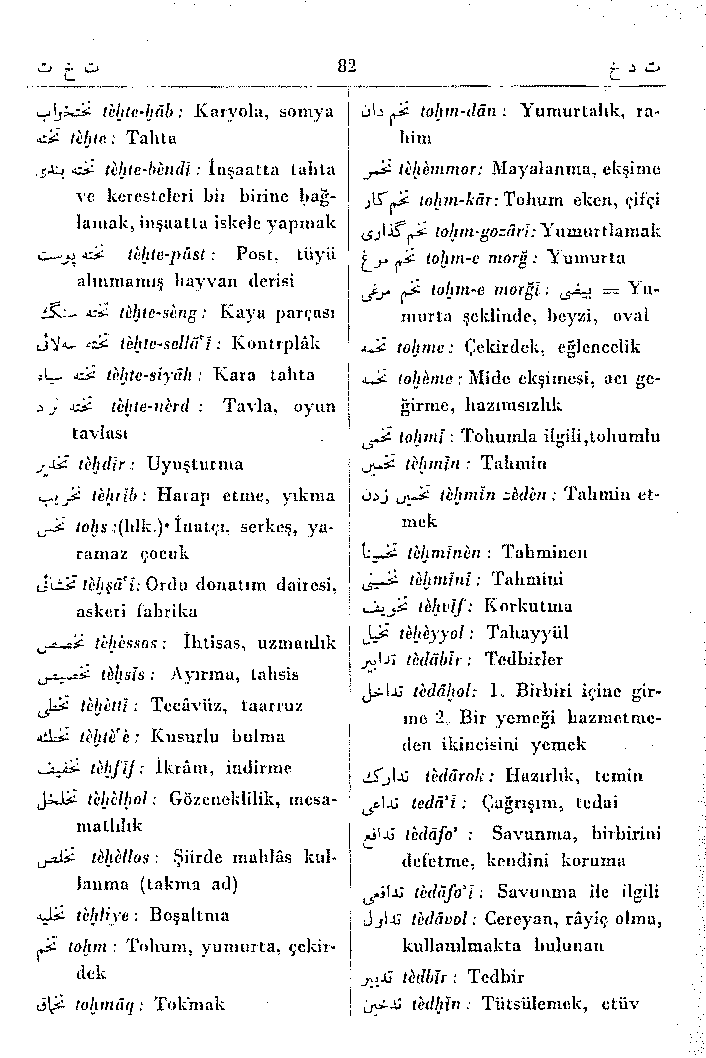 ت خ ت 82 ت د خ
تختخواب tèḫte-ḫāb : Karyola, somya
تخته tèḫte : Tahta
تخته بندی tèḫte-bèndî : İnşaatta tahta
ve keresteleri bir birine bağ-
lamak, inşaatta iskele yapmak
تخته پوست tèḫte-pūst : Post, tüyü
alınmamış hayvan derisi
تخته سنگ tèḫte-sèng : Kaya parçası
تخته سه‌لائی tèḫte-sellā'î : Kontrplâk
تخته سیاه tèḫte-siyāh : Kara tahta
تخته نرد tèḫte-nèrd : Tavla, oyun
tavlası
تخدیر tèḫdîr : Uyuşturma
تخریب tèḫrîb : Harap etme, yıkma
تخس toḫs :(hlk.) İnatçı, serkeş, ya-
ramaz çocuk
تخشائی tèḫşā'î: Ordu donatım dairesi,
askeri fabrika
تخصص tèḫèssos : İhtisas, uzmanlık
تخصیص tèḫsîs : Ayırma, tahsis
تخطی tèḫèttî : Tecâvüz, taarruz
تخطئه tèḫtè'è : Kusurlu bulma
تخفیف tèḫfîf : İkrâm, indirme
تخلخل tèḫèlḫol : Gözeneklilik, mesa-
matlılık
تخلص tèḫèllos : Şiirde mahlâs kul-
lanma (takma ad)
تخلیه tèḫliye : Boşaltma
تخم toḫm : Tohum, yumurta, çekir-
dek
تخماق toḫmāq : Tokmak
تخم دان toḫm-dān : Yumurtalık, ra-
him
تخمر tèḫèmmor: Mayalanma, ekşime
تخم کار toḫm-kār: Tohum eken, çifçi
تخم گذاری toḫm-gozārî: Yumurtlamak
تخم مرغ toḫm-e morğ : Yumurta
تخم مرغی toḫm-e morğî : بیضی = Yu-
murta şeklinde, beyzi, oval
تخمه toḫme : Çekirdek, eğlencelik
تخمه toḫème : Mide ekşimesi, acı ge-
ğirme, hazımsızlık
تخمی toḫmî : Tohumla ilgili,tohumlu
تخمین tèḫmîn : Tahmin
تخمین زدن tèḫmîn zèdèn : Tahmin et-
mek
تخمینا tèḫmînèn : Tahminen
تخمینی tèḫmînî : Tahmini
تخویف tèḫvîf : Korkutma
تخیل tèḫèyyol : Tahayyül
تدابیر tèdābîr : Tedbirler
تداخل tèdāḫol: 1. Birbiri içine gir-
me 2. Bir yemeği hazmetme-
den ikincisini yemek
تدارک tèdārok : Hazırlık, temin
تداعی tedā'î : Çağrışım, tedai
تدافع tèdāfo' : Savunma, birbirini
defetme, kendini koruma
تدافعی tèdāfo'î : Savunma ile ilgili
تداول tèdāvol : Cereyan, râyiç olma,
kullanılmakta bulunan
تدبیر tèdbîr : Tedbir
تدخین tèdḫîn : Tütsülemek, etüv